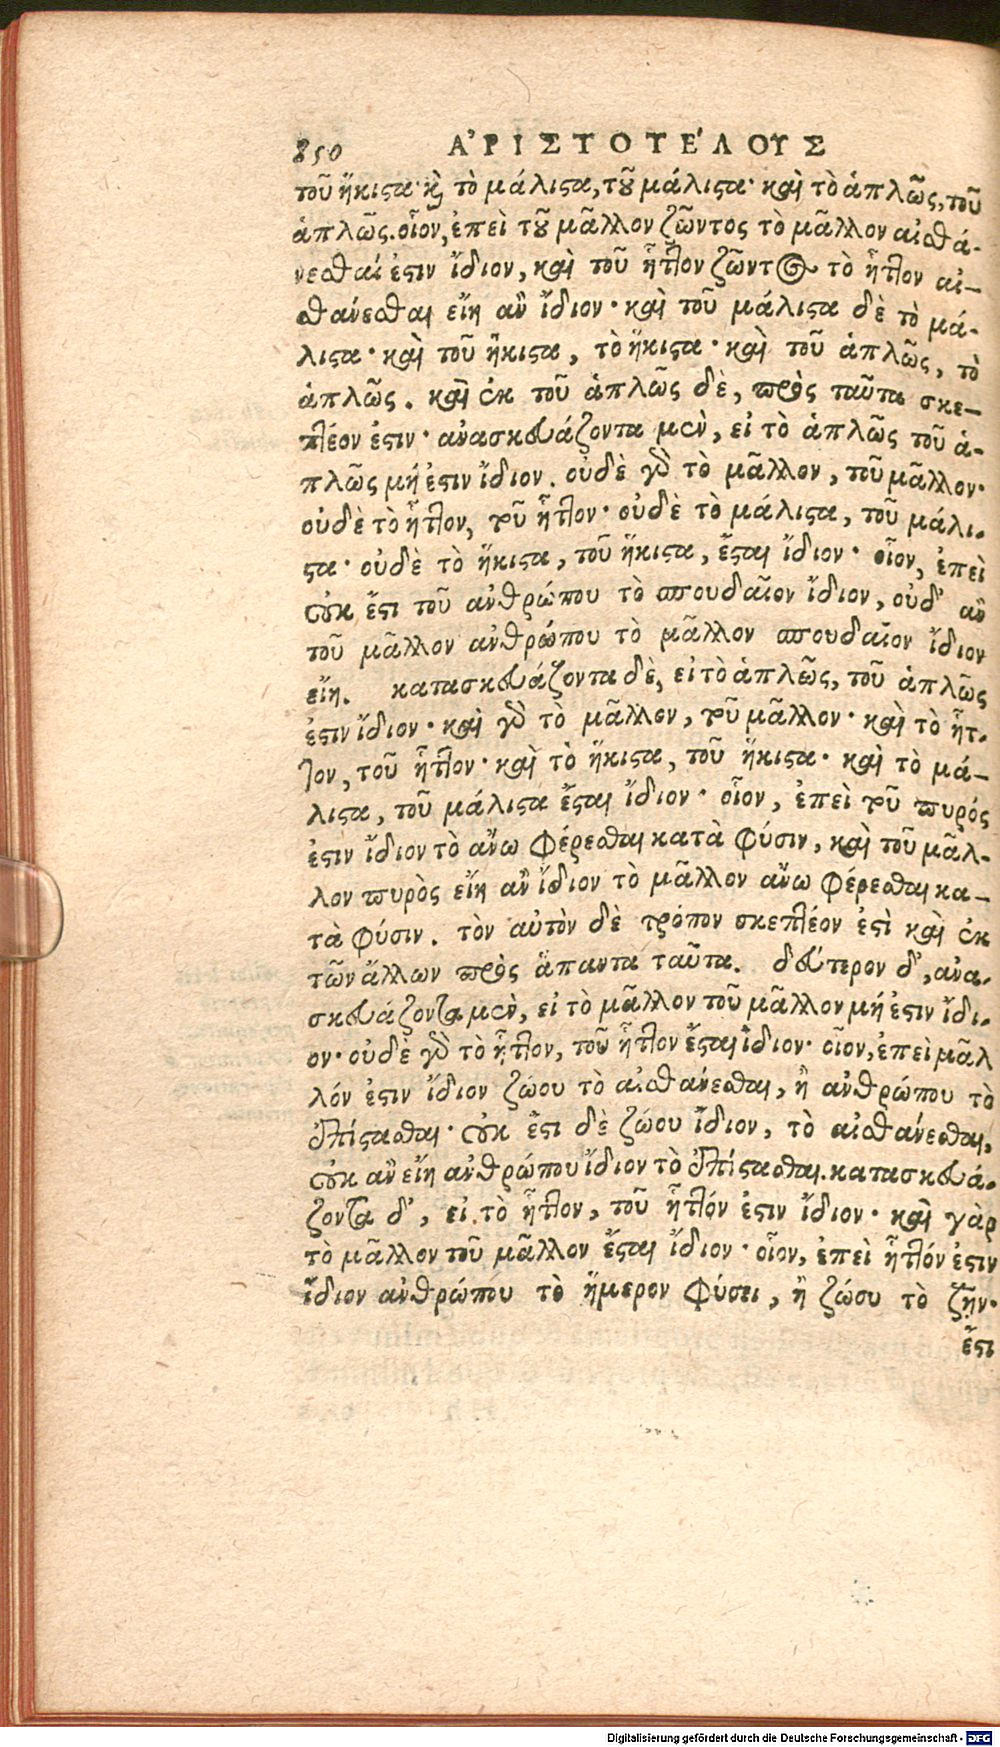 850 ἈΡΙΣΤΟΤΈΛΟΥΣ
τοῦ ἥκιστα· κ̀ τὸ μάλιστα, τοῦ μάλιστα· καὶ τὸ ἁπλῶς, τοῦ
ἁπλῶς. οἷον, ἐπεὶ τοῦ μᾶλλον ζῶντος τὸ μᾶλλον αἰσθά-
νεσθαί ἐστιν ἴδιον, καὶ τοῦ ἧττον ζῶντος τὸ ἧττον αἰ-
σθάνεσθαι εἴη ἂν ἴδιον· καὶ τοῦ μάλιστα δὲ τὸ μά-
λιστα· καὶ τοῦ ἥκιστα, τὸ ἥκιστα· καὶ τοῦ ἁπλῶς, τὸ
ἁπλῶς. καὶ ἐκ τοῦ ἁπλῶς δὲ, πρὸς ταῦτα σκε-
πτέον ἐστίν· ἀνασκευάζοντα μὲν, εἰ τὸ ἁπλῶς τοῦ ἁ-
πλῶς μή ἐστιν ἴδιον. οὐδὲ γὰρ τὸ μᾶλλον, τοῦ μᾶλλον·
οὐδὲ τὸ ἧττον, τοῦ ἧττον· οὐδὲ τὸ μάλιστα, τοῦ μάλι-
στα· οὐδὲ τὸ ἥκιστα, τοῦ ἥκιστα, ἔσται ἴδιον· οἷον, ἐπεὶ
οὐκ ἔστι τοῦ ἀνθρώπου τὸ σπουδαῖον ἴδιον, οὐδ' ἂν
τοῦ μᾶλλον ἀνθρώπου τὸ μᾶλλον σπουδαῖον ἴδιον
εἴη. κατασκευάζοντα δὲ, εἰ τὸ ἁπλῶς, τοῦ ἁπλῶς
ἐστιν ἴδιον· καὶ γὰρ τὸ μᾶλλον, τοῦ μᾶλλον· καὶ τὸ ἧτ-
τον, τοῦ ἧττον· καὶ τὸ ἥκιστα, τοῦ ἥκιστα· καὶ τὸ μά-
λιστα, τοῦ μάλιστα ἔσται ἴδιον· οἷον, ἐπεὶ τοῦ πυρός
ἐστιν ἴδιον τὸ ἄνω φέρεσθαι κατὰ φύσιν, καὶ τοῦ μᾶλ-
λον πυρὸς εἴη ἂν ἴδιον τὸ μᾶλλον ἄνω φέρεσθαι κα-
τὰ φύσιν. τὸν αὐτὸν δὲ τρόπον σκεπτέον ἐστὶ καὶ ἐκ
τῶν ἄλλων πρὸς ἅπαντα ταῦτα. δεύτερον δ', ἀνα-
σκευάζοντα μὲν, εἰ τὸ μᾶλλον τοῦ μᾶλλον μή ἐστιν ἴδι-
ον· οὐδὲ γὰρ τὸ ἧττον, τοῦ ἧττον ἔσται ἴδιον· οἷον, ἐπεὶ μᾶλ
λόν ἐστιν ἴδιον ζώου τὸ αἰσθάνεσθαι, ἢ ἀνθρώπου τὸ
ἐπίστασθαι· οὐκ ἔστι δὲ ζώου ἴδιον, τὸ αἰσθάνεσθαι,
οὐκ ἂν εἴη ἀνθρώπου ἴδιον τὸ ἐπίστασθαι. κατασκευά-
ζοντα δ', εἰ τὸ ἧττον, τοῦ ἧττόν ἐστιν ἴδιον· καὶ γὰρ
τὸ μᾶλλον τοῦ μᾶλλον ἔσται ἴδιον· οἷον, ἐπεὶ ἧττόν ἐστιν
ἴδιον ἀνθρώπου τὸ ἥμερον φύσει, ἢ ζώου τὸ ζῆν·
ἔστι
Digitalisierung gefördert durch die Deutsche Forschungsgemeinschaft - DFG